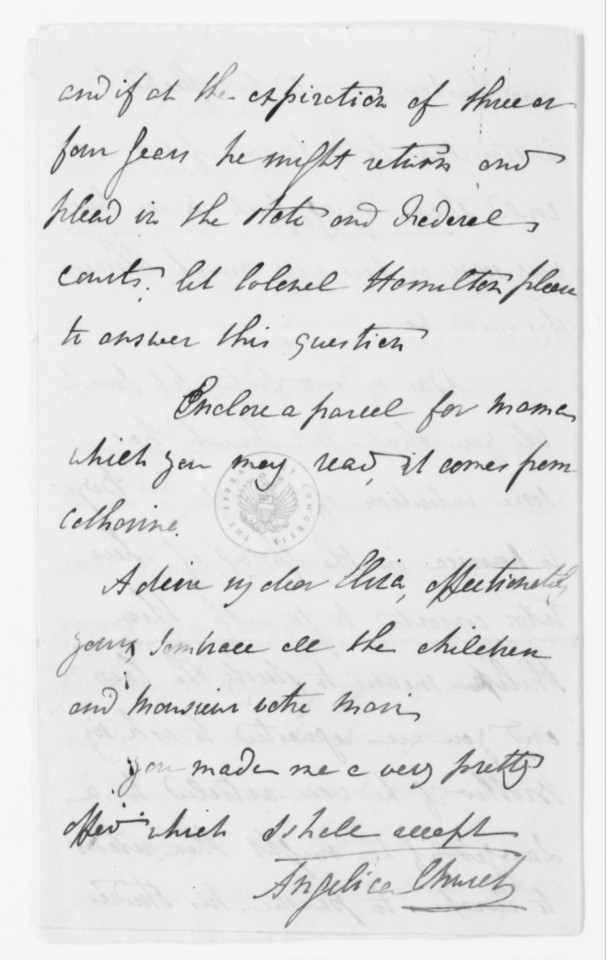 and if at the expiration of three or
four years he might return and
plead in the State and Federal
courts, let Colonel Hamilton please
to answer this question
Enclose a parcel for mama
which you may read, it comes from
Catharine.
Adieu my dear Eliza, affectionately
yours I embrace all the children
and Monsieur votre mari,
you made me a very pretty
offer which I shall accept
Angelica Church
THE LIBRARY OF CONGRESS